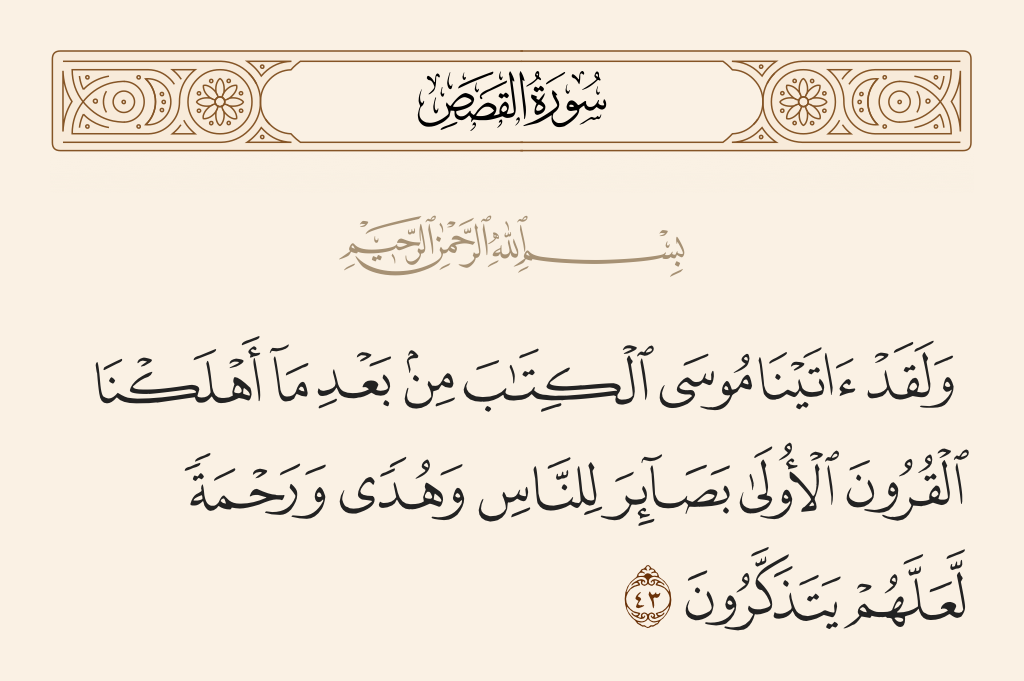 سُورَةُ القَصَصِ
بِسْمِ ٱللَّهِ ٱلرَّحْمَٰنِ ٱلرَّحِيمِ
وَلَقَدْ ءَاتَيْنَا مُوسَى ٱلْكِتَٰبَ مِنۢ بَعْدِ مَآ أَهْلَكْنَا
ٱلْقُرُونَ ٱلْأُولَىٰ بَصَآئِرَ لِلنَّاسِ وَهُدًى وَرَحْمَةً
لَّعَلَّهُمْ يَتَذَكَّرُونَ ٤٣